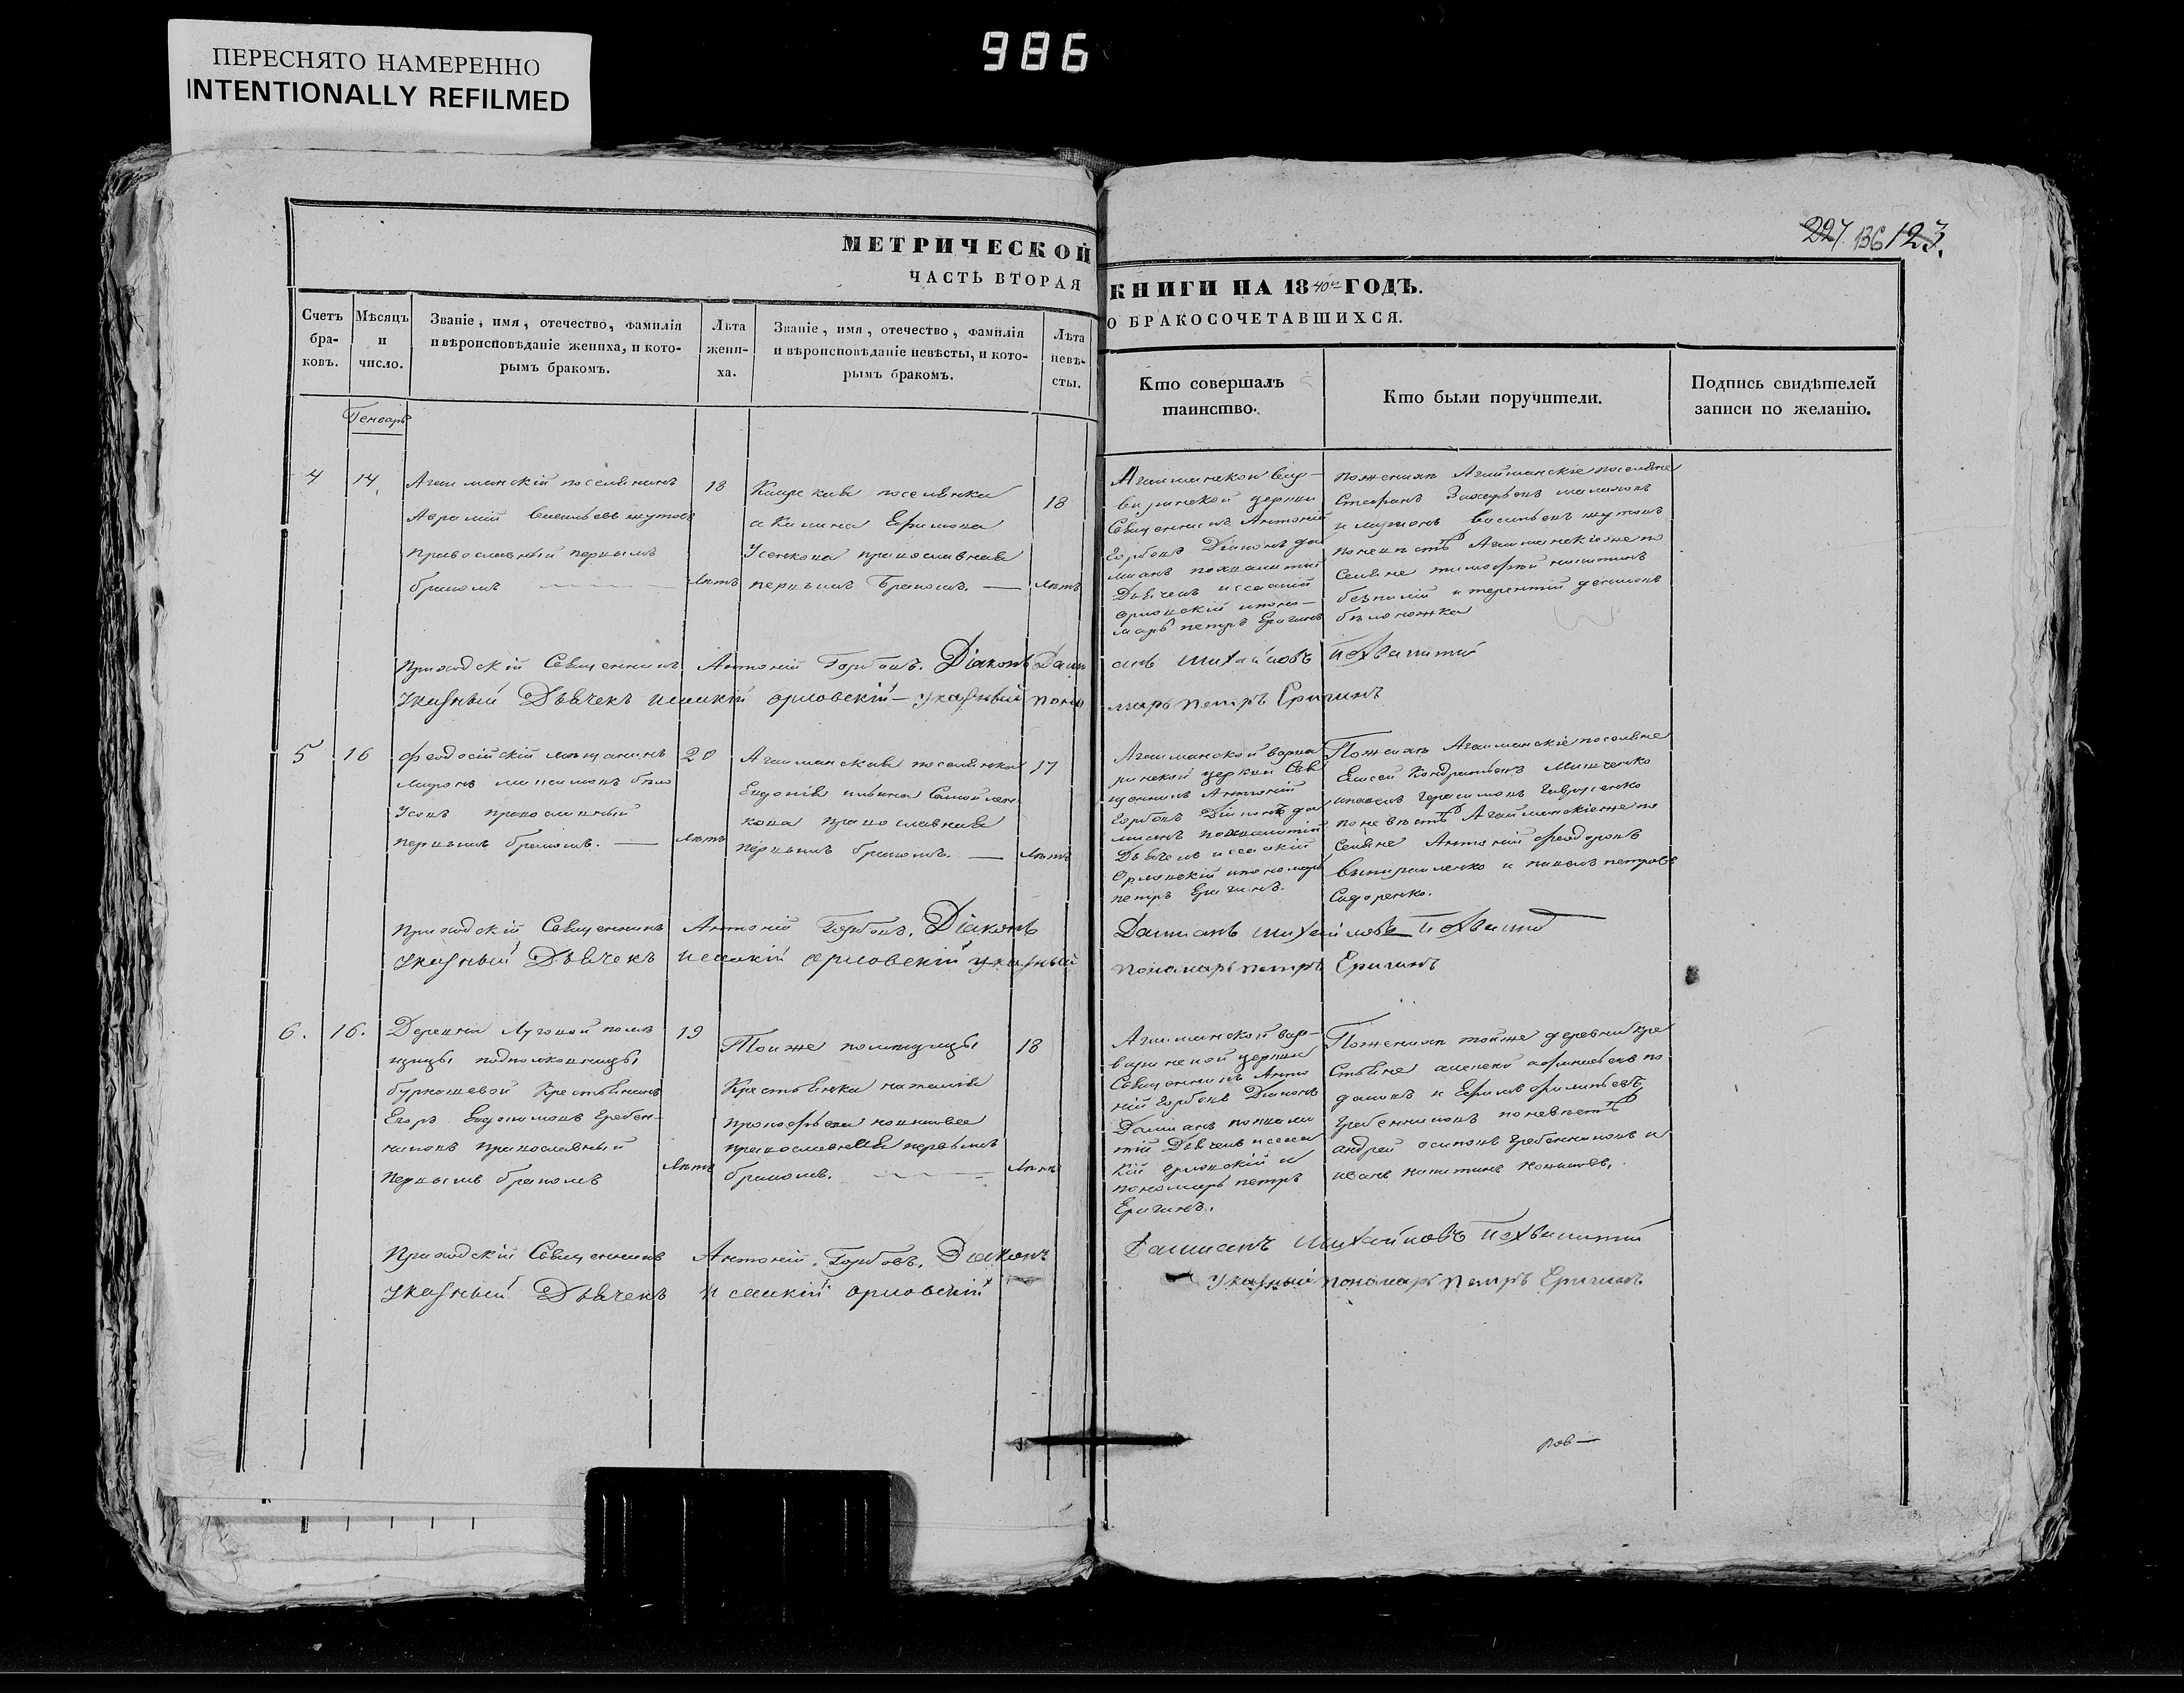 986
ПЕРЕСНЯТО НАМЕРЕННО
INTENTIONALLY REFILMED
227 136 123.
МЕТРИЧЕСКОЙ
ЧАСТЬ ВТОРАЯ
КНИГИ НА 1840й ГОДЪ.
О БРАКОСОЧЕТАВШИХСЯ.
Счетъ
бра-
ковъ.
Мѣсяцъ
и
число.
Званіе, имя, отечество, фамилія
и вѣроисповѣданіе жениха, и кото-
рымъ бракомъ.
Лѣта
жени-
ха.
Званіе, имя, отечество, фамилія
и вѣроисповѣданіе невѣсты, и кото-
рымъ бракомъ.
Лѣта
невѣ-
сты.
Кто совершалъ
таинство.
Кто были поручители.
Подпись свидѣтелей
записи по желанію.
Генварь
4
14
Агаиманскій поселянинъ
Аврамій Васильевъ шутовъ
православный первымъ
бракомъ
18
Лѣтъ
поселянка
акилина Ефимова
Усенкова православная
первымъ бракомъ.
18
Лѣтъ
Агаиманской вар-
варинской церкви
Священникъ Антоній
Горбовъ Діаконъ да
міанъ похвалитій
Дьячекъ исаакій
орловскій и поно-
марь петръ Еригинъ
пожених Агайманскіе поселяне
Стефанъ Захарьевъ
и Васильевъ шутовъ
поневѣстѣ Агаиманскіеже по
селяне тимофей никитинъ
и терентій
бѣлоножка
приходскій Священникъ Антоній Горбовъ. Діаконъ Дамі
анъ Михайловъ Похвалитій
указный Дьячекъ исаакій орловскій — указный поно
марь петръ Еригинъ
5
16
феодосійскій мѣщанинъ
миронъ бѣло
Усовъ православный
первымъ бракомъ.
20
Лѣтъ
Агаиманская поселянка
Евдокія ильина Самойлен
кова православная
первымъ бракомъ.
17
Лѣтъ
Агаиманской варва
ринской церкви Свя
щенникъ Антоній
Горбовъ Діаконъ да
міанъ похвалитій
Дьячекъ исаакій
Орловскій и пономарь
петръ Еригинъ.
Пожених Агаиманскіе поселяне
Елисей Кондратьевъ Мищенко
и павелъ Герасимовъ Гавриленко
поневѣстѣ Агайманскіеже по
селяне Антоній феодоровъ
и павелъ петровъ
Сидоренко.
приходскій Священникъ Антоній Горбовъ. Діаконъ
Даміанъ Михайловъ Похвалит
указный Дьячекъ исаакій орловскій указный
пономарь петръ Еригинъ
6.
16.
Деревни Луговой помѣ
щицы подполковницы
бурнашевой Крестьянинъ
Егоръ Евдокимовъ Гребен-
никовъ православный
первымъ бракомъ
19
Лѣтъ
Тоиже помѣщицы
Крестьянка наталія
прокофьева
православная первымъ
бракомъ.
18
Лѣтъ
Агаиманской вар-
варинской церкви
Священникъ Анто
ній Горбовъ Діаконъ
Даміанъ похвали
тій Дьячекъ исаа
кій орловскій и
пономарь петръ
Еригинъ.
Пожених тойже деревни кре
стьяне алексей афанасьевъ по
и Ефимъ филипьевъ
Гребенниковъ поневѣстѣ
андрей осиповъ Гребенниковъ и
иванъ никитинъ
Приходскій Священникъ Антоній Горбовъ. Діаконъ
Даміанъ Михайловъ Похвалитій
указный Дьячекъ исаакій орловскій
указный пономарь петръ Еригинъ